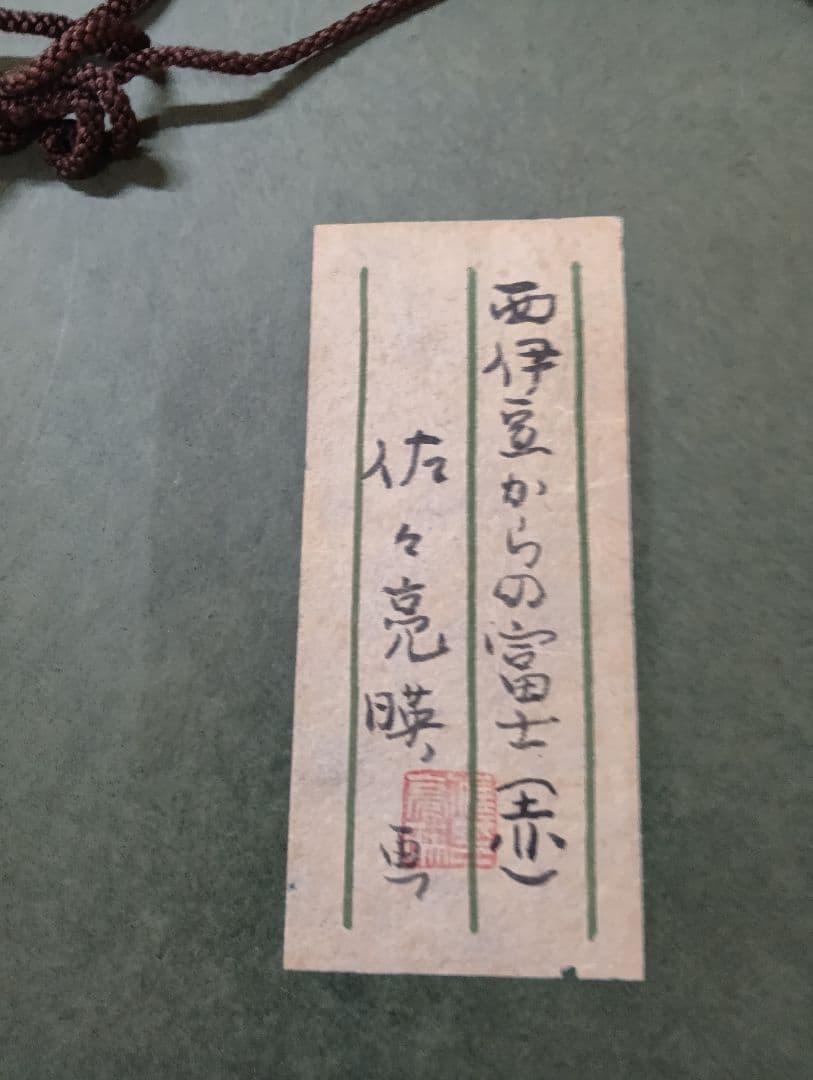 西伊豆からの富士(赤)
佐々亮暎画